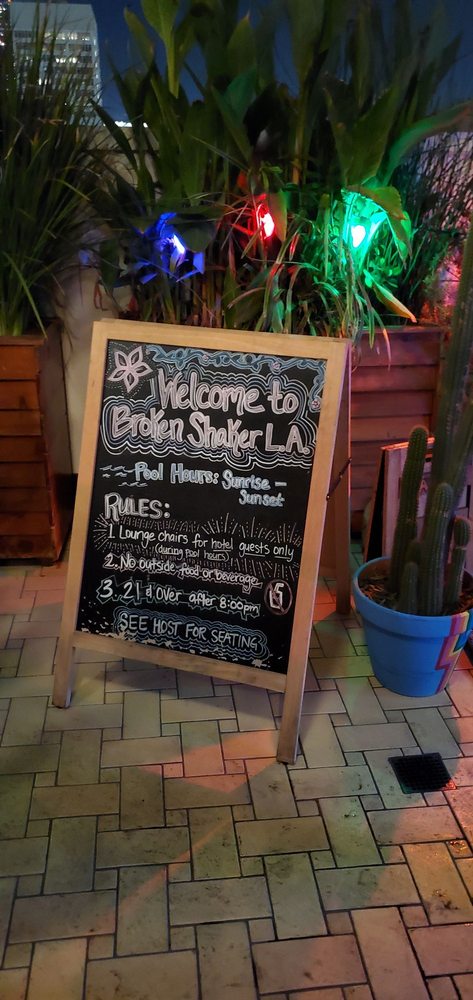 Welcome to
Broken Shaker L.A.
Pool Hours: Sunrise -
Sunset
RULES:
1 Lounge chairs for hotel guests only
(during pool hours)
2. No outside food or beverage
3. 21 & over after 8:00pm
SEE HOST FOR SEATING